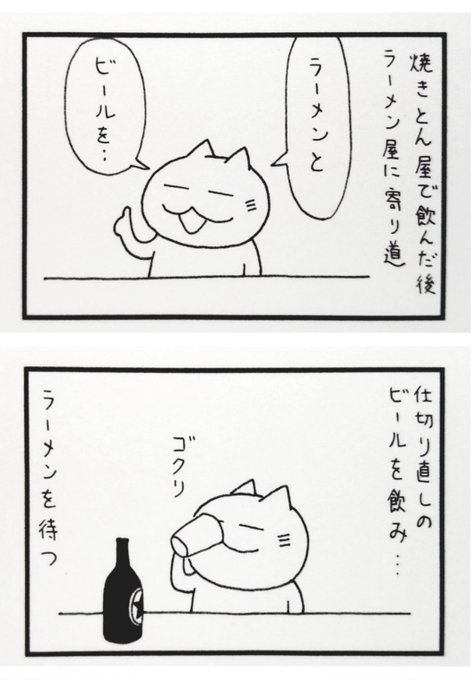 焼きとん屋で飲んだ後
ラーメン屋に寄り道
ラーメンと
ビールを…
仕切り直しの
ビールを飲み…
ゴクリ
ラーメンを待つ